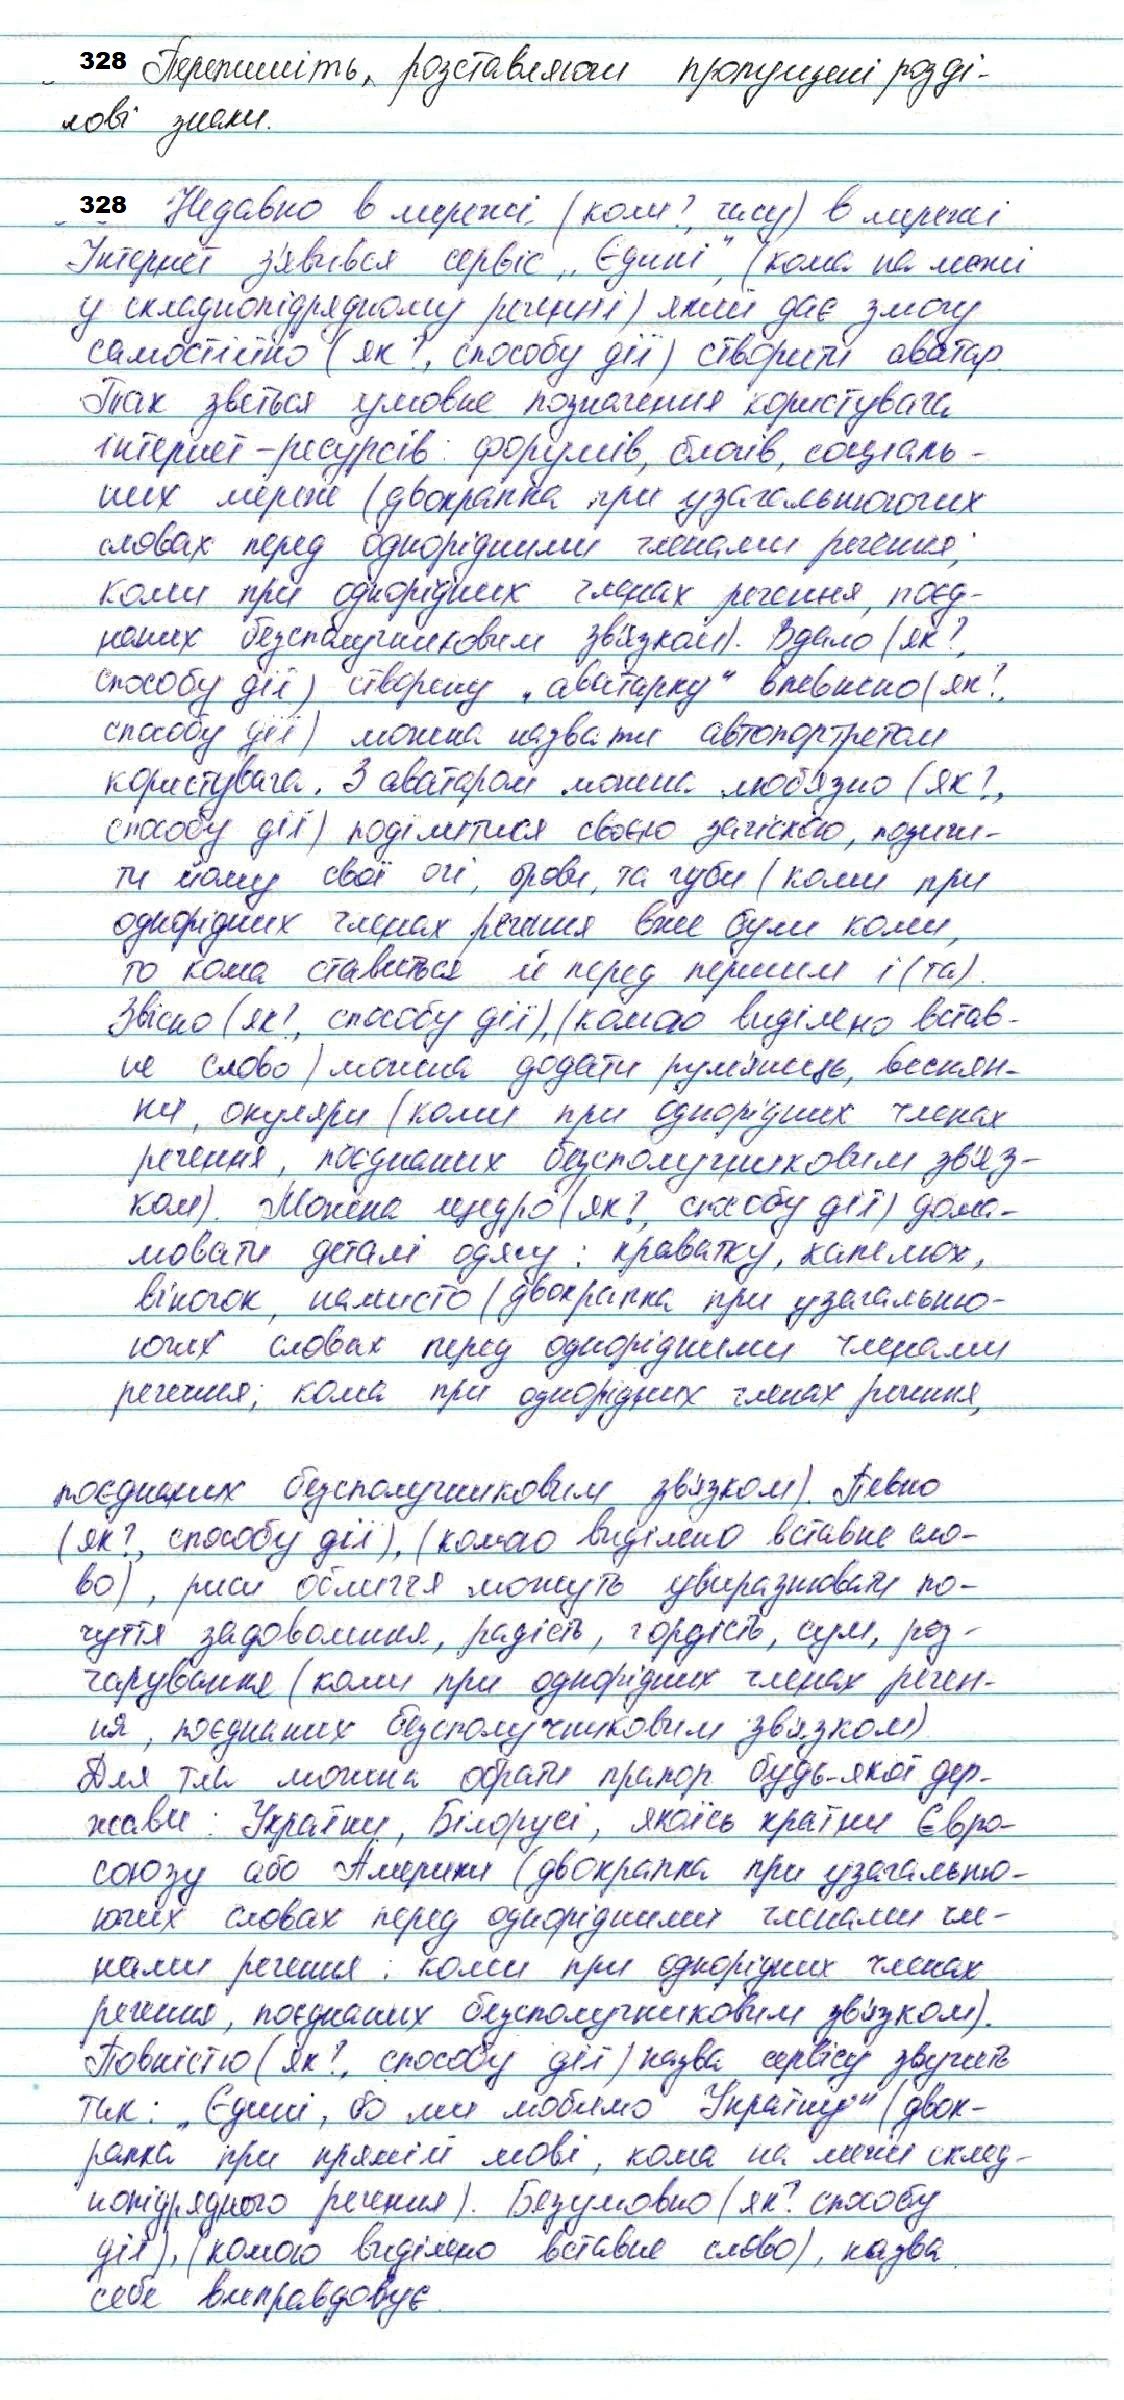 328 Перепишіть, розставляючи пропущені розді-
лові знаки.
328 Недавно в мережі (коли?, часу) в мережі
Інтернет з'явився сервіс „Єдині", (кома на межі
у складнопідрядному реченні) який дає змогу
самостійно (як?, способу дії) створити аватар.
Так зветься умовне позначення користувача
інтернет-ресурсів: форумів, блогів, соціаль-
них мереж (двокрапка при узагальнюючих
словах перед однорідними членами речення;
коми при однорідних членах речення, поєд-
наних безсполучниковим зв'язком). Вдало (як?,
способу дії) створену „аватарку" впевнено (як?,
способу дії) можна назвати автопортретом
користувача. З аватаром можна люб'язно (як?,
способу дії) поділитися своєю зачіскою, позичи-
ти йому свої очі, брови, та губи (коми при
однорідних членах речення вже були коми,
то кома ставиться й перед першим і (та).
Звісно (як?, способу дії), (комою виділено встав-
не слово) можна додати рум'янець, веснян-
ки, окуляри (коми при однорідних членах
речення, поєднаних безсполучниковим зв'яз-
ком). Можна щедро (як?, способу дії) дома-
лювати деталі одягу: краватку, капелюх,
віночок, намисто (двокрапка при узагальню-
ючих словах перед однорідними членами
речення; кома при однорідних членах речення,
поєднаних безсполучниковим зв'язком). Певно
(як?, способу дії), (комою виділено вставне сло-
во), риси обличчя можуть увиразнювати по-
чуття задоволення, радість, гордість, сум, роз-
чарування (коми при однорідних членах речен-
ня, поєднаних безсполучниковим зв'язком)
Для тла можна обрати прапор будь-якої дер-
жави: України, Білорусі, якоїсь країни Євро-
союзу або Америки (двокрапка при узагальню-
ючих словах перед однорідними членами чле-
нами речення: коми при однорідних членах
речення, поєднаних безсполучниковим зв'язком).
Повністю (як?, способу дії) назва сервісу звучить
так: „Єдині, бо ми любимо Україну" (двок-
рапка при прямій мові, кома на межі склад-
нопідрядного речення). Безумовно (як? способу
дії), (комою виділено вставне слово), назва
себе виправдовує